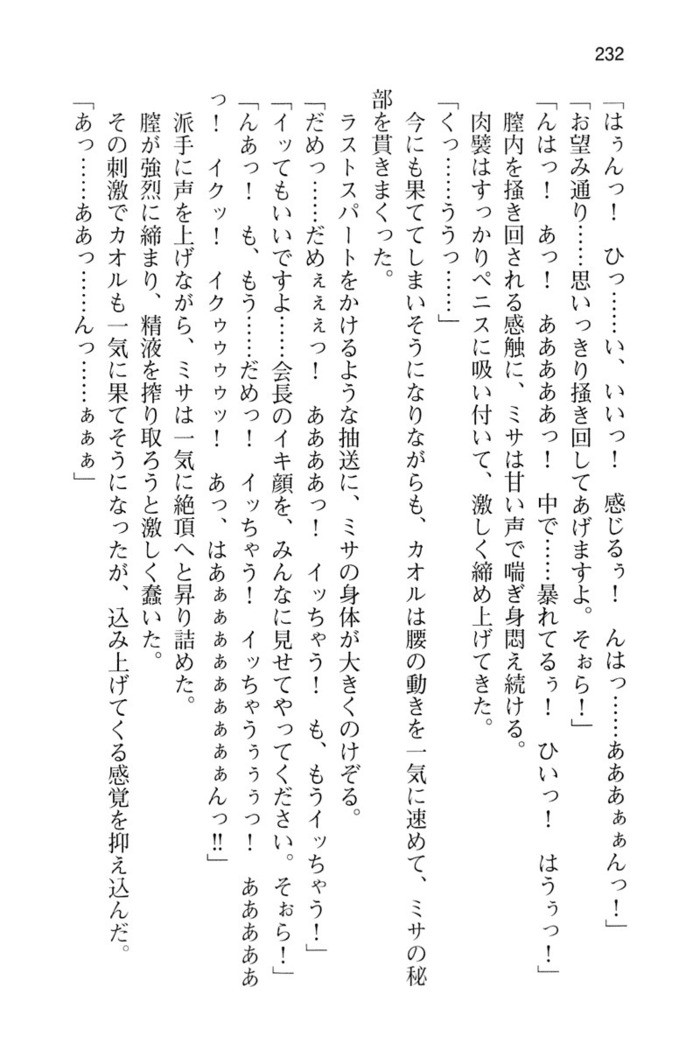 232
「はぅんっ！　ひっ……い、いいっ！　感じるぅ！　んはっ……あああぁぁんっ！」
「お望み通り……思いっきり掻き回してあげますよ。そぉら！」
「んはっ！　あっ！　あああああっ！　中で……暴れてるぅ！　ひいっ！　はうぅっ！」
膣内を掻き回される感触に、ミサは甘い声で喘ぎ身悶え続ける。
肉襞はすっかりペニスに吸い付いて、激しく締め上げてきた。
「くっ……ううっ……」
今にも果ててしまいそうになりながらも、カオルは腰の動きを一気に速めて、ミサの秘
部を貫きまくった。
ラストスパートをかけるような抽送に、ミサの身体が大きくのけぞる。
「だめっ……だめぇぇぇっ！　ああああっ！　イッちゃう！　も、もうイッちゃう！」
「イッてもいいですよ……会長のイキ顔を、みんなに見せてやってください。そぉら！」
「んあっ！　も、もう……だめっ！　イッちゃう！　イッちゃうぅぅぅっ！　ああああああ
っ！　イクッ！　イクゥゥゥゥッ！　あっ、はあぁぁぁぁぁぁぁぁんっ‼」
派手に声を上げながら、ミサは一気に絶頂へと昇り詰めた。
膣が強烈に締まり、精液を搾り取ろうと激しく蠢いた。
その刺激でカオルも一気に果てそうになったが、込み上げてくる感覚を抑え込んだ。
「あっ……ああっ……んっ……ぁぁぁ」